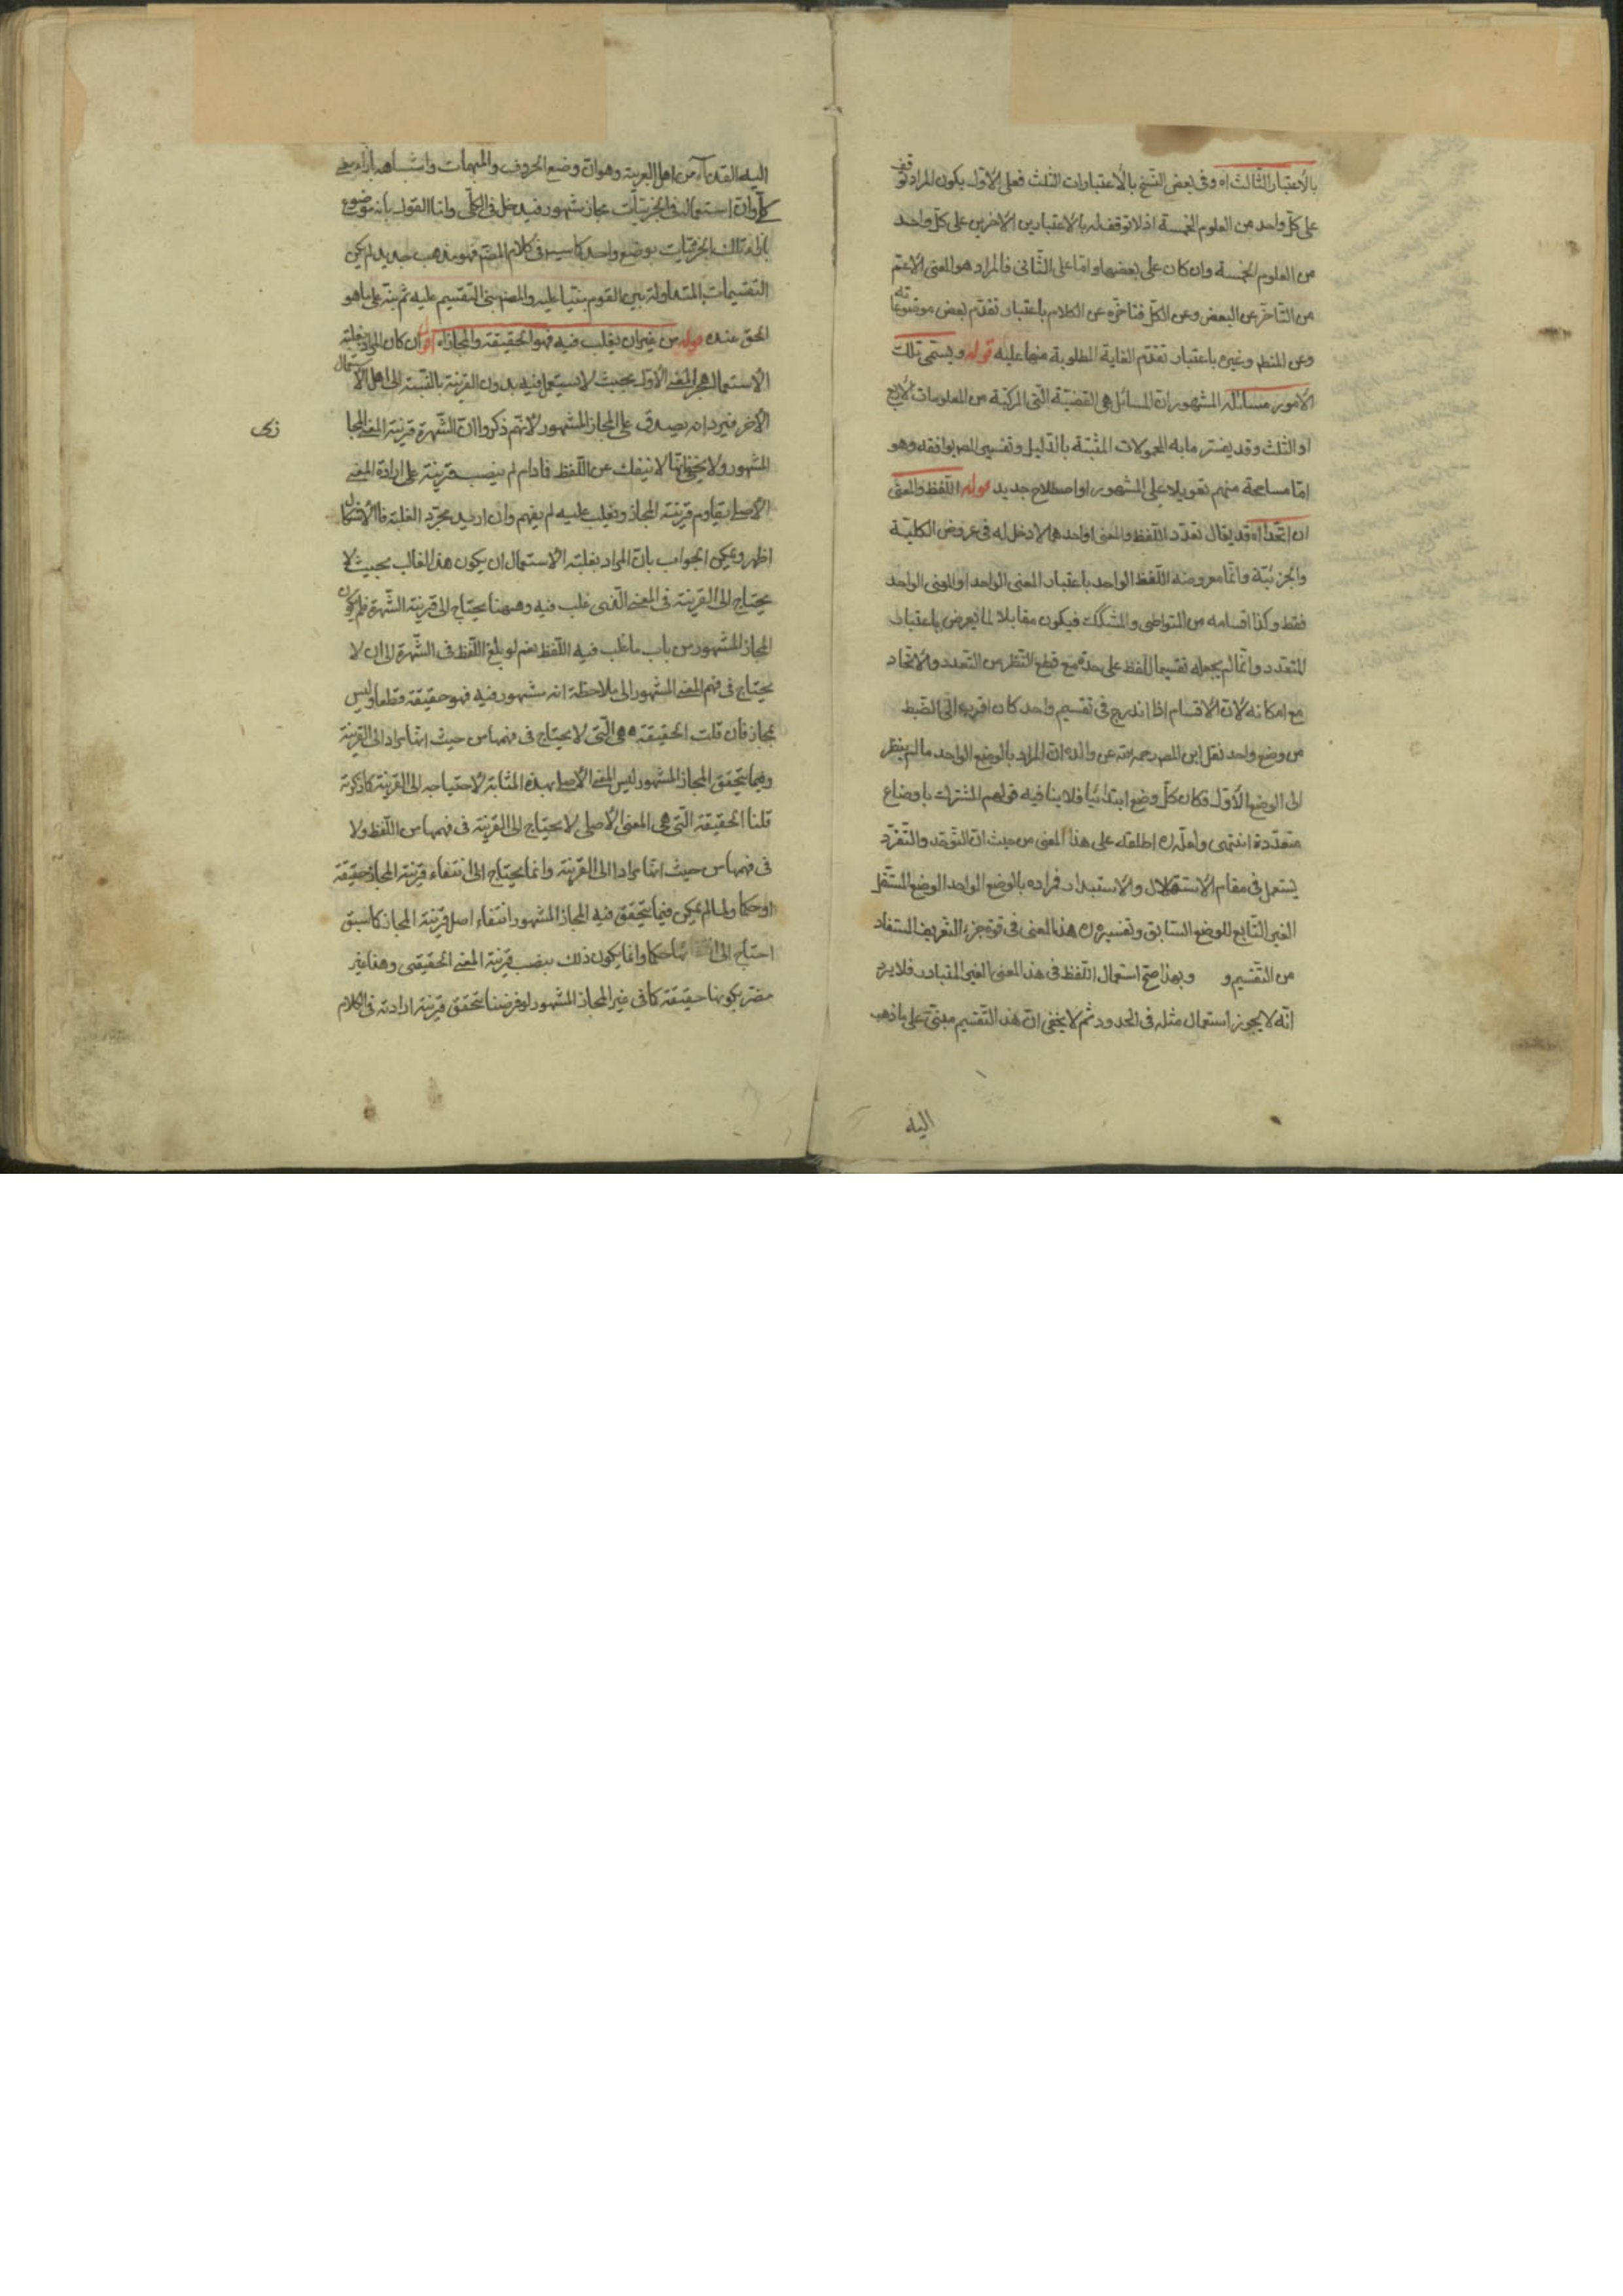 بالاعتبار الثالث اه وفى بعض النسخ بالاعتبارات الثلث فعلى الاول يكون المراد توقف
على كل واحد من العلوم الخمسة اذ لا توقف له بالاعتبارين الاخرين على كل واحد
من العلوم الخمسة وان كان على بعضها واما على الثانى فالمراد هو المعنى الاعم
من التاخر عن البعض وعن الكل فتاخره عن الكلام باعتبار تقدم بعض موضوعاته
وعن المنطق وغيره باعتبار تقدم الغاية المطلوبة منها عليه قوله ويسمى تلك
الامور مسائله المشهور ان المسائل هى القضية التى المركبة من المعلومات الاربع
او الثلث وقد يفسر مابه المحمولات المثبتة بالدليل وتفسير المص يوافقه وهو
اما مسامحة منهم تعويلا على المشهور او اصطلاح جديد قوله اللفظ والمعنى
ان اتحدا اه قد يقال تعدد اللفظ والمعنى او احدهما لا دخل له فى عروض الكلية
والجزئية وانما معروضه اللفظ الواحد باعتبار المعنى الواحد او المعنى الواحد
فقط وكذا اقسامه من المتواطى والمشكك فيكون مقابلا لما يعرض باعتبار
المتعدد وانما لم يجعله تقسيما للفظ على حدة مع قطع النظر من التعدد والاتحاد
مع امكانه لان الاقسام اذا اندرج فى تقسيم واحد كان اقرب الى الضبط
من وضع واحد نقل ابن المص رحمه الله عن والده ان المراد بالوضع الواحد ما لم ينظر
الى الوضع الاول فكان كل وضع ابتدائيا فلا ينافيه قولهم المشترك باوضاع
متعددة انتهى ولعله ره اطلقه على هذا المعنى من حيث ان التوحد والتفرد
يستعمل فى مقام الاستقلال والاستبداد فمراده بالوضع الواحد الوضع المستقل
الغير التابع للوضع السابق وتفسيره ره هذا المعنى فى قوة جزء التعريف المستفاد
من التقسيم و وبهذا صح استعمال اللفظ فى هذا المعنى الغير المتبادر فلا يرد
انه لا يجوز استعمال مثله فى الحدود ثم لا يخفى ان هذا التقسيم مبنى على ما ذهب
اليه
اليه القدماء من اهل العربية وهو ان وضع الحروف والمبهمات واشباهه بازاء معنى
كلى وان استعمالها فى الجزئيات مجاز مشهور فيدخل فى الكلى واما القول بانه موضوع
بازاء تلك الجزئيات بوضع واحد كما سيجئ فى كلام المصم فهو مذهب جديد لم يكن
التقسيمات المتداولة بين القوم مبنيا عليه والمص بنى التقسيم عليه ثم بنه على ما هو
الحق عنده قوله من غير ان يغلب فيه فهو الحقيقة والمجاز اه اقول ان كان المراد بغلبة
الاستعمال هجر المعنى الاول بحيث لا يستعمل فيه بدون القرينة بالنسبة الى اهل الاستعمال
الاخر فيرد انه يصدق على المجاز المشهور لانهم ذكروا ان الشهرة قرينة المعنى المجا
زى
المشهور ولا يخفى انها لا ينفك عن اللفظ فما دام لم ينصب قرينة على ارادة المعنى
الاصلى يقاوم قرينة المجاز ويغلب عليه لم يفهم وان اريد مجرد الغلبة فالاشكال
اظهر ويمكن الجواب بان المراد بغلبة الاستعمال ان يكون هذا الغالب بحيث لا
يحتاج الى القرينة فى المعنى الذى غلب فيه وههنا يحتاج الى قرينة الشهرة فلم يكون
المجاز المشهور من باب ما غلب فيه اللفظ نعم لو بلغ اللفظ فى الشهرة الى ان لا
يحتاج فى فهم المعنى المشهور الى ملاحظة انه مشهور فيه فهو حقيقة قطعا وليس
بمجاز فان قلت الحقيقة هى التى لا يحتاج فى فهمها من حيث انها مراد الى القرينة
وفيما يتحقق المجاز المشهور ليس المعنى الاصلى بهذه المثابة لاحتياجه الى القرينة كما ذكرته
قلنا الحقيقة التى هى المعنى الاصلى لا يحتاج الى القرينة فى فهمها من اللفظ ولا
فى فهمها من حيث انها مرادا الى القرينة وانما يحتاج الى انتفاء قرينة المجاز حقيقة
او حكما ولما لم يمكن فيما يتحقق فيه المجاز المشهور انتفاء اصل قرينة المجاز كما سبق
احتاج الى حكما وانما يكون ذلك بنصب قرينة المعنى الحقيقى وهذا غير
مضر بكونها حقيقة كما فى غير المجاز المشهور لو فرضنا تحقق قرينة ارادته فى الكلام